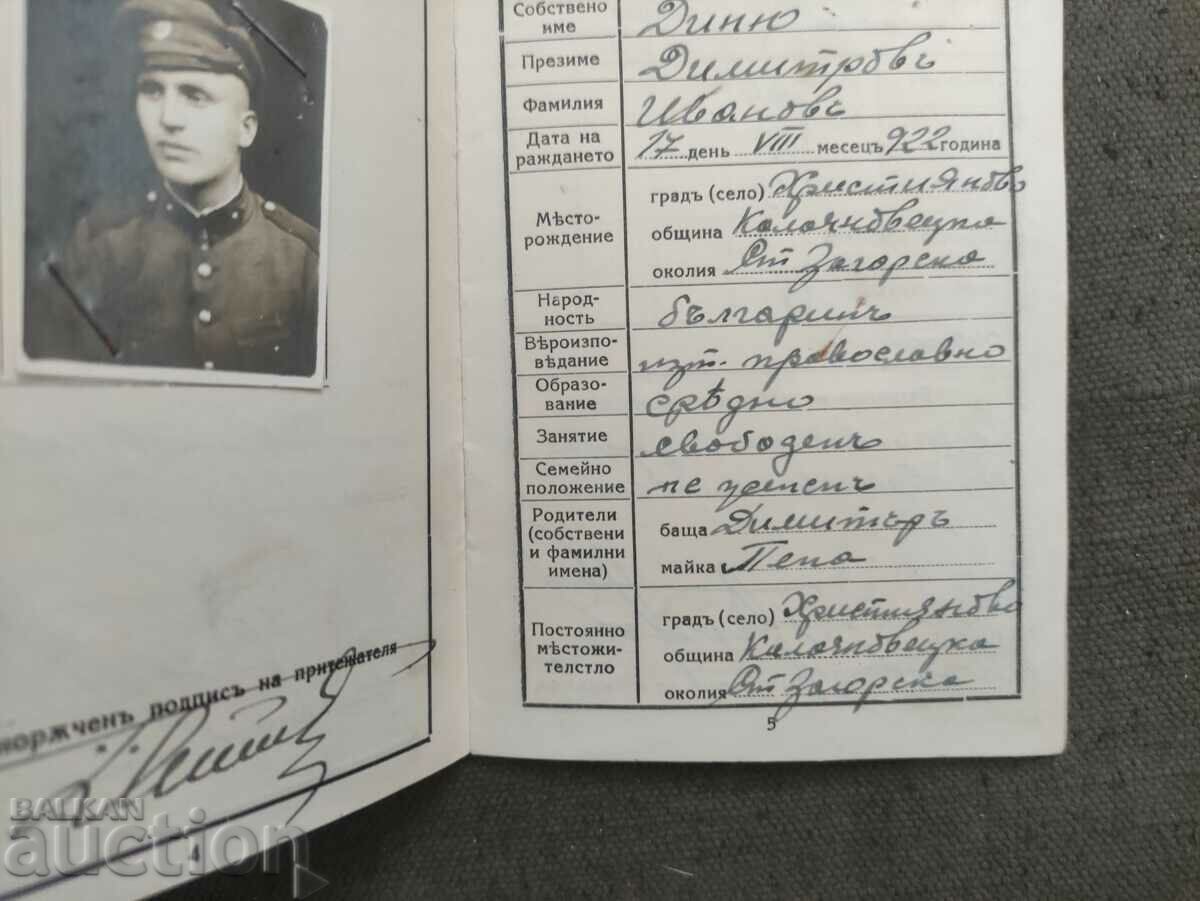 саморѫченъ подпись на притежателя
4
BALKAN
auction
Собствено име Диню
Презиме Димитровъ
Фамилия Ивановъ
Дата на раждането 17 день VIII месецъ 922 година
Мѣсторождение градъ (село) Християново
община Калояновецка
околия Ст Загорска
Народность българинъ
Вѣроизповѣдание изт. православно
Образование срѣдно
Занятие свободенъ
Семейно положение не жененъ
Родители (собствени и фамилни имена) баща Димитъръ
майка Пена
Постоянно мѣстожителстло градъ (село) Християново
община Калояновецка
околия Ст Загорска
5